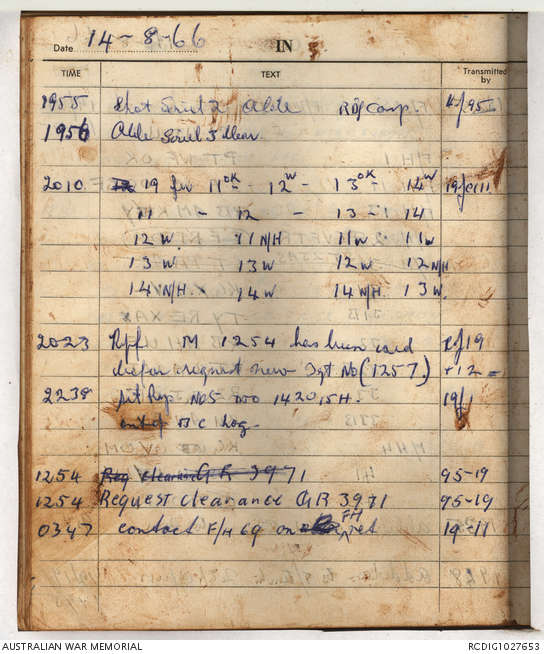 Date 14-8-66 IN
TIME TEXT Transmitted by
1955 Shot Serial 2 Alde RDf Comp.
1956 Alde Serial 3 Clear.
2010 19 for 11 OK - 12 W - 13 OK - 14 W
11 - 12 - 13 - 14
12 W. 11 N/H 11 W 11 W
13 W 13 W 12 W 12 N/H
14 N/H. 14 W 14 N/H 13 W
2023 M 1254 has been used R/19
before request new Tgt No (1257.)
2238 Sit Rep No5 142015H. 19/1
out of Log.
1254 Req clearance GR 3971 95-19
1254 Request clearance GR 3971 95-19
0347 contact F/H 69 on FH net 19-11
AUSTRALIAN WAR MEMORIAL RCDIG1027653